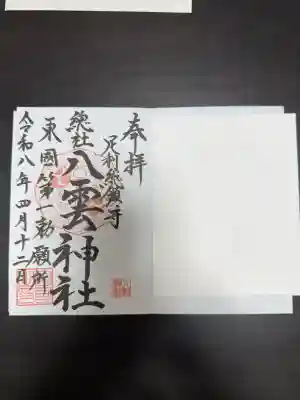 奉拝
足利総鎮守
総社
八雲神社
東國第一勅願所
令和八年四月十二日